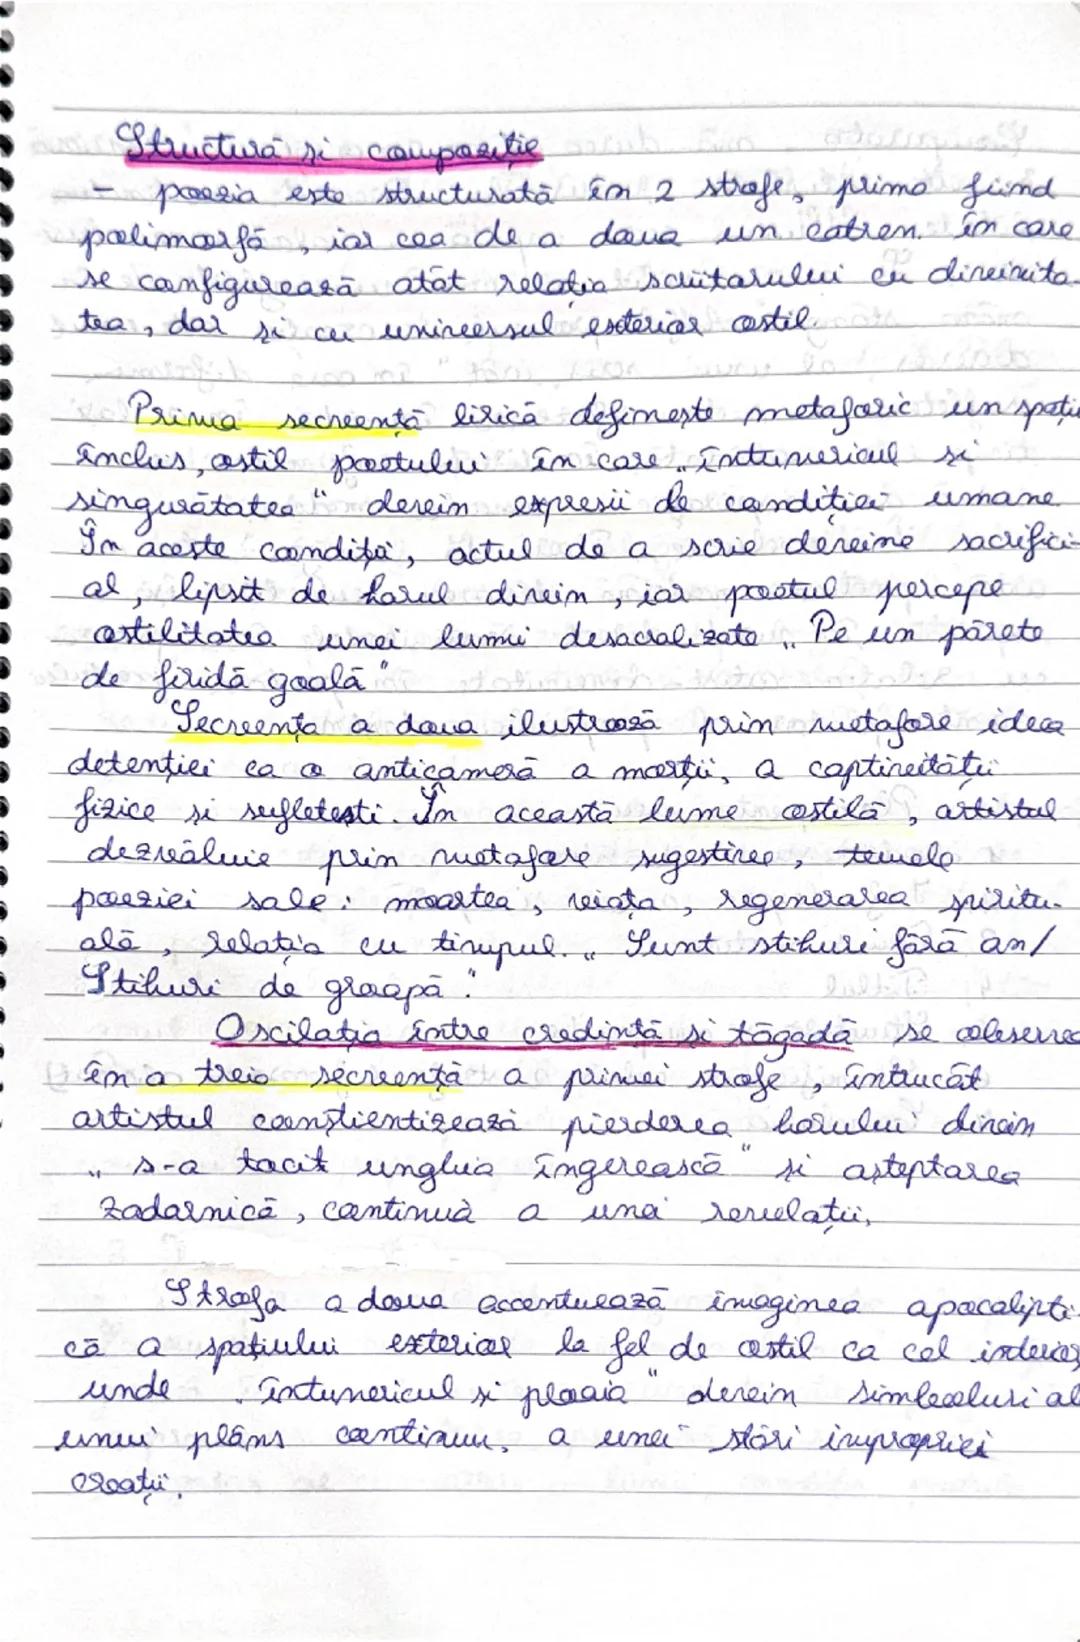 Structură și compoziție
- poezia este structurată în 2 strofe, prima fiind
polimorfă, iar cea de a doua un catren în care
se configurează atât relația scriitorului cu divinita-
tea, dar și cu universul exterior ostil.
Prima secvență lirică definește metaforic un spațiu
închis, ostil poetului în care „întunericul și
singurătatea" devin expresii de condiției umane.
În aceste condiții, actul de a scrie devine sacrifici-
al, lipsit de harul divin, iar poetul percepe
ostilitatea unei lumi desacralizate „Pe un părete
de firidă goală"
Secvența a doua ilustrează prin metafore ideea
detenției ca o anticameră a morții, a captivității
fizice și sufletești. În această lume ostilă, artistul
dezvăluie prin metafore sugestive, temele
poeziei sale: moartea, viața, regenerarea spiritu-
ală, relația cu timpul. „Sunt stihuri fără an/
Stihuri de groapă".
Oscilația între credință și tăgadă se observă
în a treia secvență a primei strofe, întrucât
artistul conștientizează pierderea harului divin
„s-a tocit unghia îngerească" și așteptarea
zadarnică, continuă a unei revelații.
Strofa a doua accentuează imaginea apocalipti-
că a spațiului exterior la fel de ostil ca cel interior
unde „întunericul și ploaia" devin simboluri al
unui plâns continuu, a unei stări impropriei
creații.